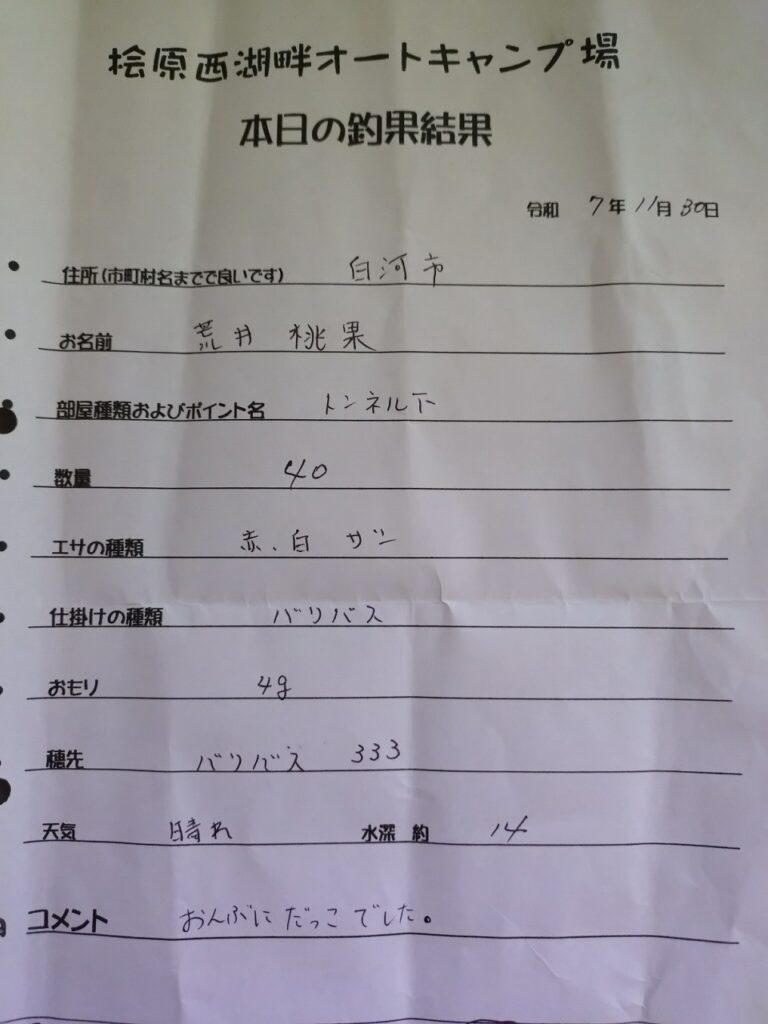 桧原西湖畔オートキャンプ場
本日の釣果結果
令和 7年 11月 30日
住所(市町村名までで良いです) 白河市
お名前 荒井 桃果
部屋種類およびポイント名 トンネル下
数量 40
エサの種類 赤、白 サシ
仕掛けの種類 バリバス
おもり 4g
穂先 バリバス 333
天気 晴れ 水深 約 14
コメント おんぶにだっこでした。